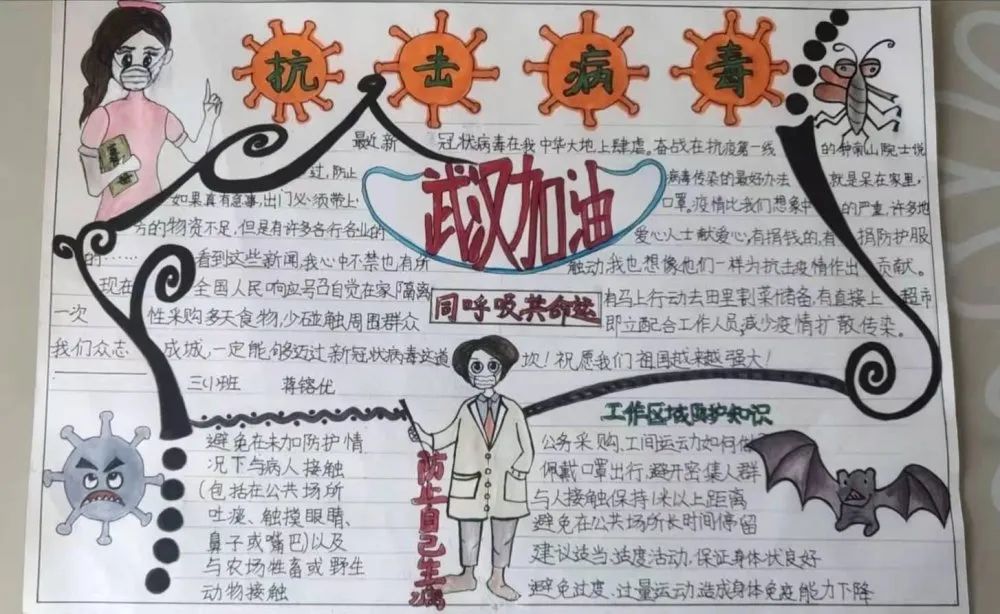 抗击病毒
最近新 冠状病毒在我中华大地上肆虐。奋战在抗疫第一线 的钟南山院士说
过,防止 病毒传染的最好办法 就是呆在家里,
如果真有急事,出门必须带上 口罩。疫情比我们想象中 的严重,许多地
方的物资不足,但是有许多各行各业的 爱心人士献爱心,有捐钱的,有 捐防护服
的…… 看到这些新闻,我心中不禁也有所 触动,我也想像他们一样为抗击疫情作出 贡献。
武汉加油
现在 全国人民响应号召自觉在家隔离 有马上行动去田里割菜储备,有直接上 超市
同呼吸,共命运
一次 性采购多天食物,少碰触周围群众 即立配合工作人员,减少疫情扩散传染。
我们众志 成城,一定能够迈过新冠状病毒这道 坎!祝愿我们祖国越来越强大!
三(1)班 蒋镕优
避免在未加防护情
况下与病人接触
(包括在公共场所
吐痰、触摸眼睛、
鼻子或嘴巴)以及
与农场牲畜或野生
动物接触
防止自己生病
工作区域防护知识
公务采购,工间运动如何做
佩戴口罩出行,避开密集人群
与人接触保持1米以上距离
避免在公共场所长时间停留
建议适当、适度活动,保证身体状良好
避免过度、过量运动造成身体免疫能力下降